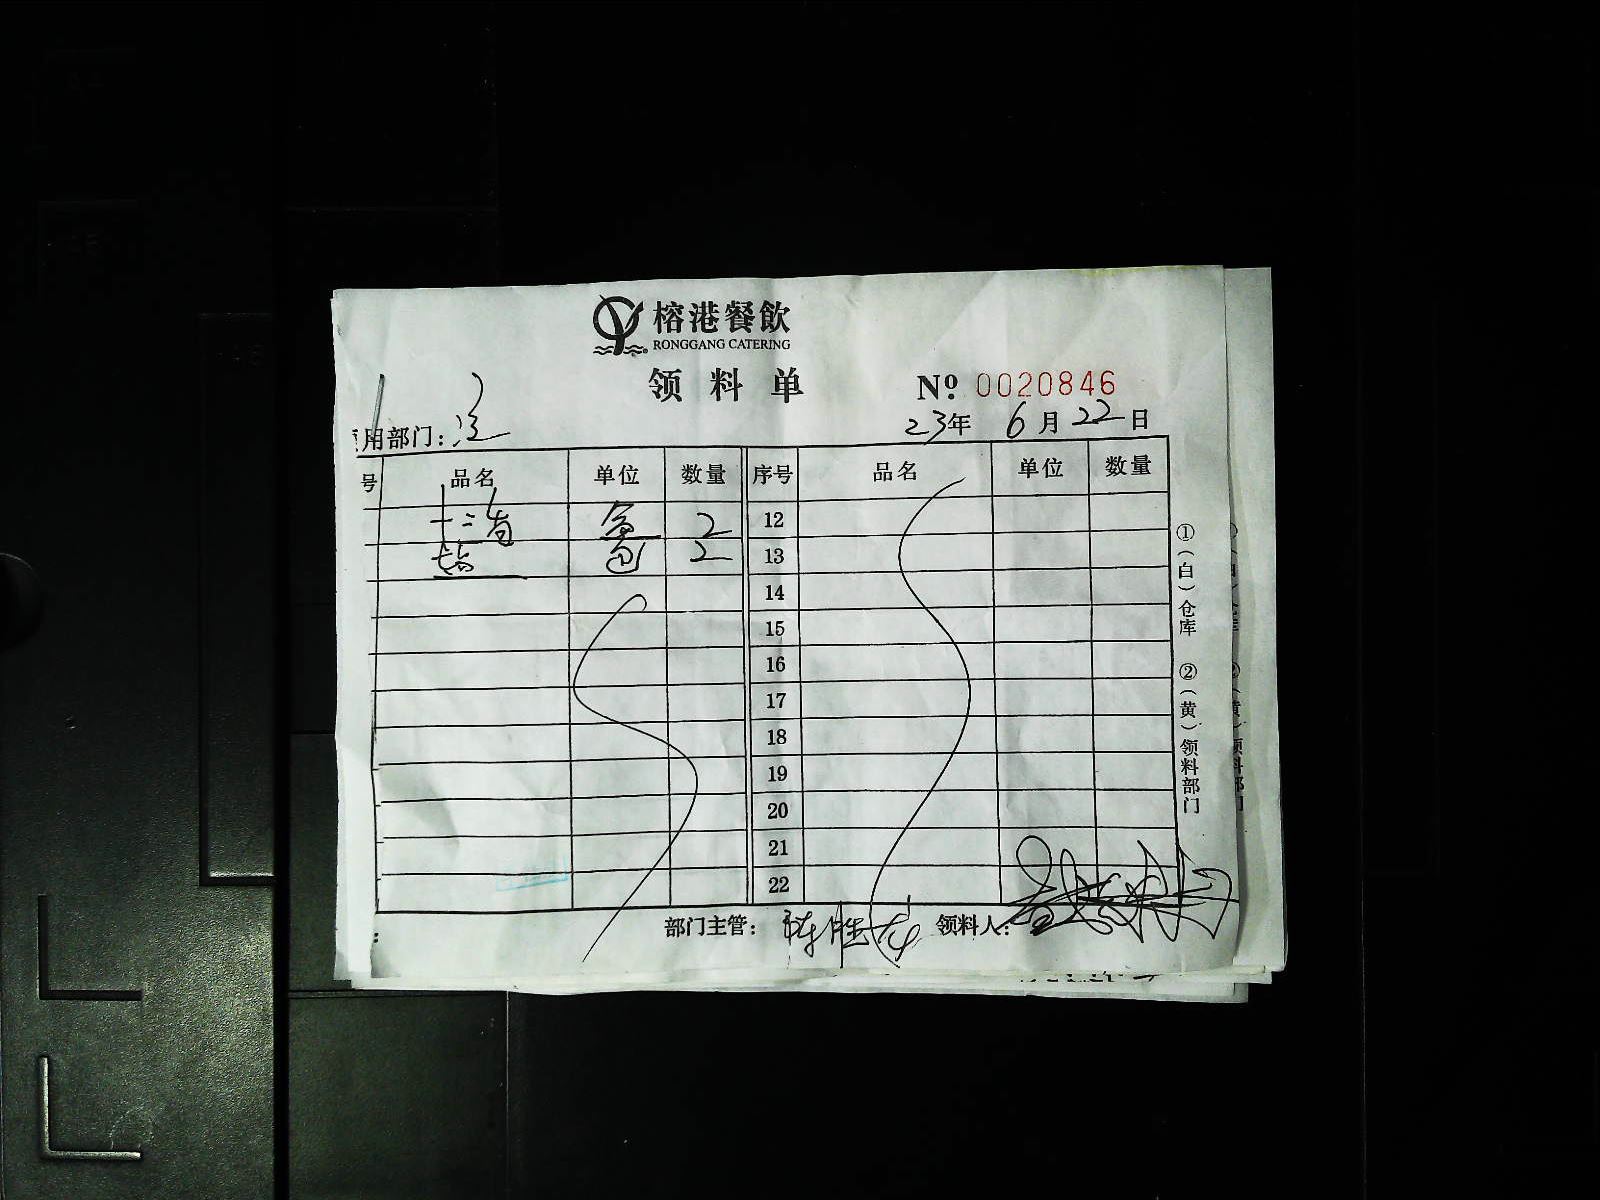 榕港餐飲
RONGGANG CATERING
领料单
Nº 0020846
23年 6月 22日
用部门:
号 品名 单位 数量 序号 品名 单位 数量
十三香 盒 2 12
盐 包 2 13
14
15
16
17
18
19
20
21
22
部门主管: 陈胜龙 领料人:
①(白)仓库 ②(黄)领料部门